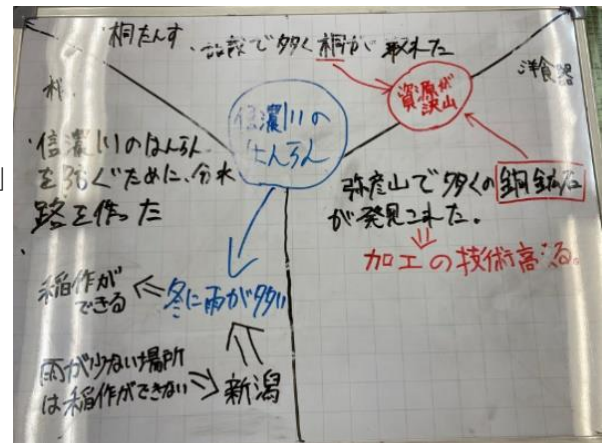 桐たんす
で多く桐が取れた
洋食器
資源が
沢山
信濃川の
はんらん
米
・信濃川のはんらん
を防ぐために、分水
路を作った
弥彦山で多くの銅鉱石
が発見された。
加工の技術高まる。
稲作が
できる
冬に雨が多い
雨が少ない場所
は稲作ができない
新潟